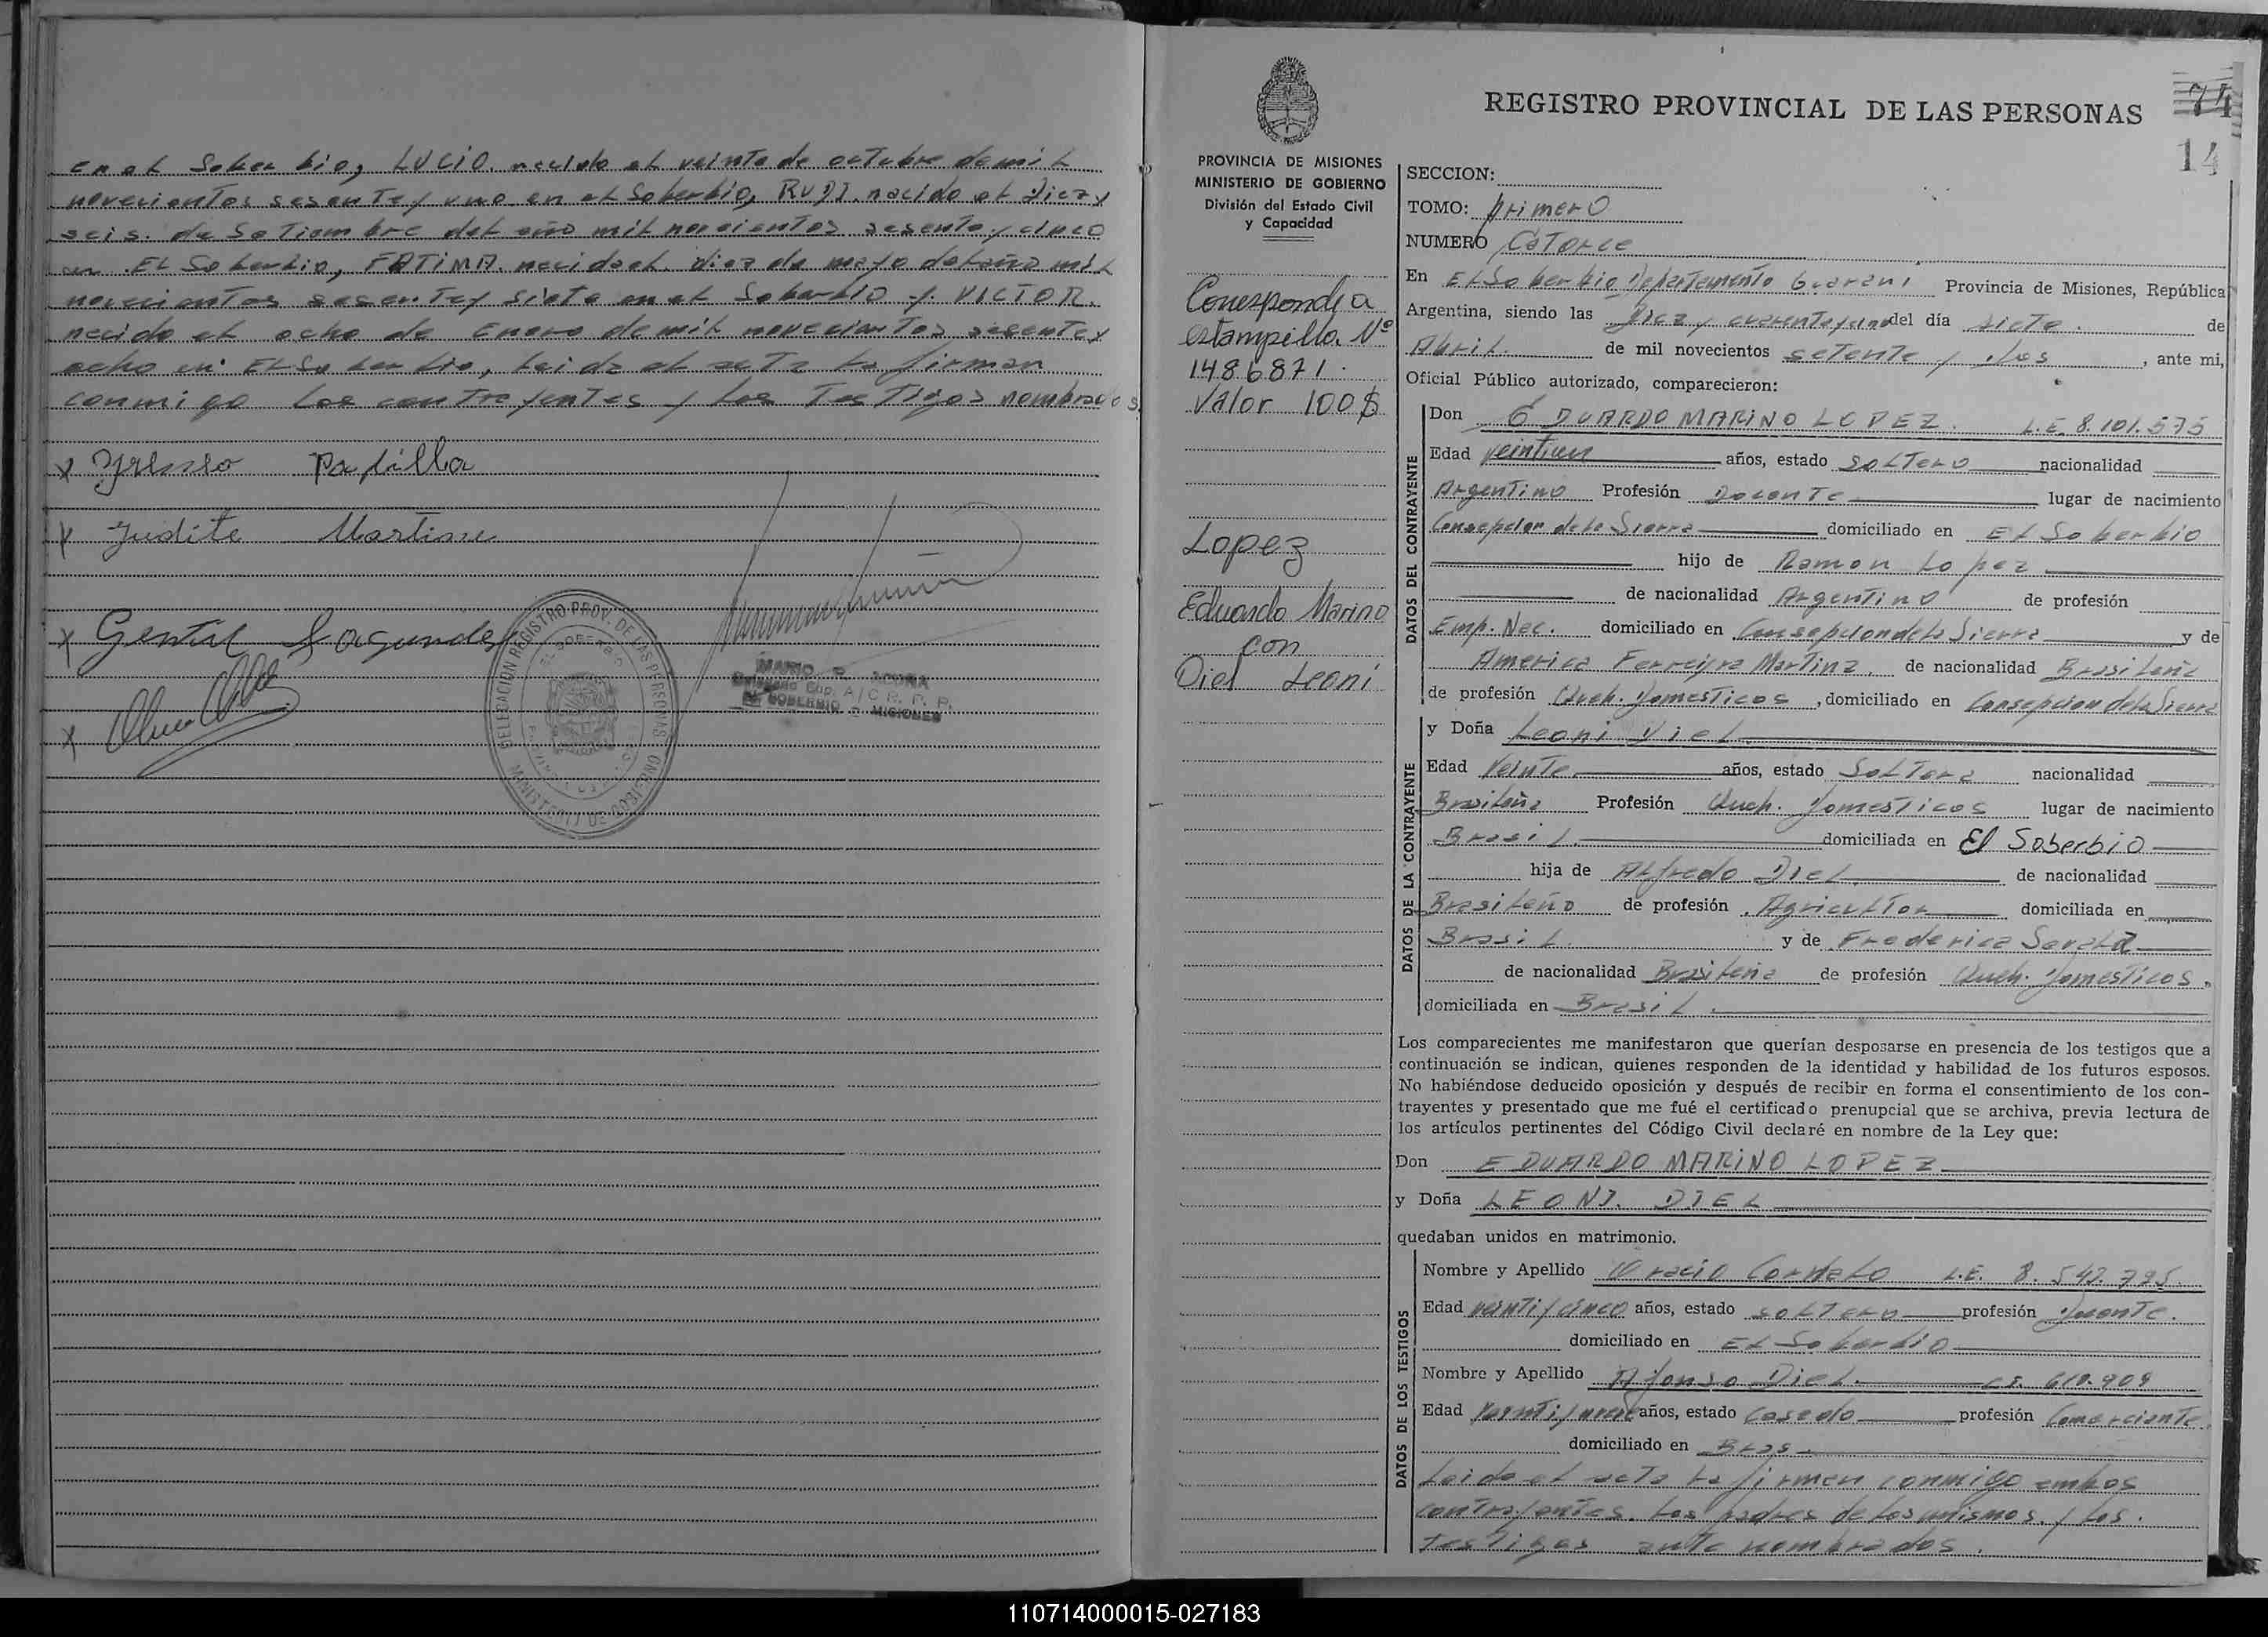 en el Soberbio, LUCIO. nacido el veinte de octubre de mil
novecientos sesenta y uno en el Soberbio, RUDI. nacido el diez y
seis. de Setiembre del año mil novecientos sesenta y cinco
en El Soberbio, FATIMA. nacida el diez de mayo del año mil
novecientos sesenta y siete en el Soberbio y VICTOR.
nacido el ocho de Enero de mil novecientos sesenta y
ocho en El Soberbio, Leida el acta la firman
conmigo los contrayentes y los Testigos nombrados
x Padilla
x Judite Martins
x Gentil Fagundes
x
DELEGACION REGISTRO PROV. DE LAS PERSONAS
EL SOBERBIO
MINISTERIO DE GOBIERNO
MARIO
Delegado Sup. A/C R. P. P.
EL SOBERBIO - MISIONES
REGISTRO PROVINCIAL DE LAS PERSONAS
74
14
PROVINCIA DE MISIONES
MINISTERIO DE GOBIERNO
División del Estado Civil
y Capacidad
Corresponde a
estampilla. Nº
1486871.
Valor 100 $
Lopez
Eduardo Marino
con
Diel Leoni
SECCION:
TOMO: primero
NUMERO Catorce
En El Soberbio Departamento Guarani Provincia de Misiones, República
Argentina, siendo las diez y cuarenta y cinco del día siete. de
Abril. de mil novecientos setenta y dos, ante mi,
Oficial Público autorizado, comparecieron:
DATOS DEL CONTRAYENTE
Don EDUARDO MARINO LOPEZ. L.E. 8.101.575
Edad veintiun años, estado soltero nacionalidad
Argentino Profesión Docente lugar de nacimiento
Consepcion de la Sierra domiciliado en El Soberbio
hijo de Ramon Lopez
de nacionalidad Argentino de profesión
Emp. Nac. domiciliado en Consepcion de la Sierra y de
America Ferreyra Martinz, de nacionalidad Brasileña
de profesión Queh. Domesticos, domiciliado en Consepcion de la Sierra
DATOS DE LA CONTRAYENTE
y Doña Leoni Diel
Edad Veinte años, estado Soltera nacionalidad
Brasileña Profesión Queh. Domesticos lugar de nacimiento
Brasil. domiciliada en El Soberbio
hija de Alfredo Diel. de nacionalidad
Brasileño de profesión Agricultor domiciliada en
Brasil. y de Frederica
de nacionalidad Brasileña de profesión Queh. Domesticos.
domiciliada en Brasil.
Los comparecientes me manifestaron que querían desposarse en presencia de los testigos que a
continuación se indican, quienes responden de la identidad y habilidad de los futuros esposos.
No habiéndose deducido oposición y después de recibir en forma el consentimiento de los con-
trayentes y presentado que me fué el certificado prenupcial que se archiva, previa lectura de
los artículos pertinentes del Código Civil declaré en nombre de la Ley que:
Don EDUARDO MARINO LOPEZ
y Doña LEONI. DIEL
quedaban unidos en matrimonio.
DATOS DE LOS TESTIGOS
Nombre y Apellido L.E. 8.542.795.
Edad veinti y cinco años, estado soltero profesión Docente.
domiciliado en El Soberbio
Nombre y Apellido Afonso Diel. 610.909
Edad Veinti y nueve años, estado Casado profesión Comerciante
domiciliado en Bras.
Leida el acta la firman conmigo ambos
contrayentes. Los padres de los mismos. y los.
testigos ante nombrados.
110714000015-027183